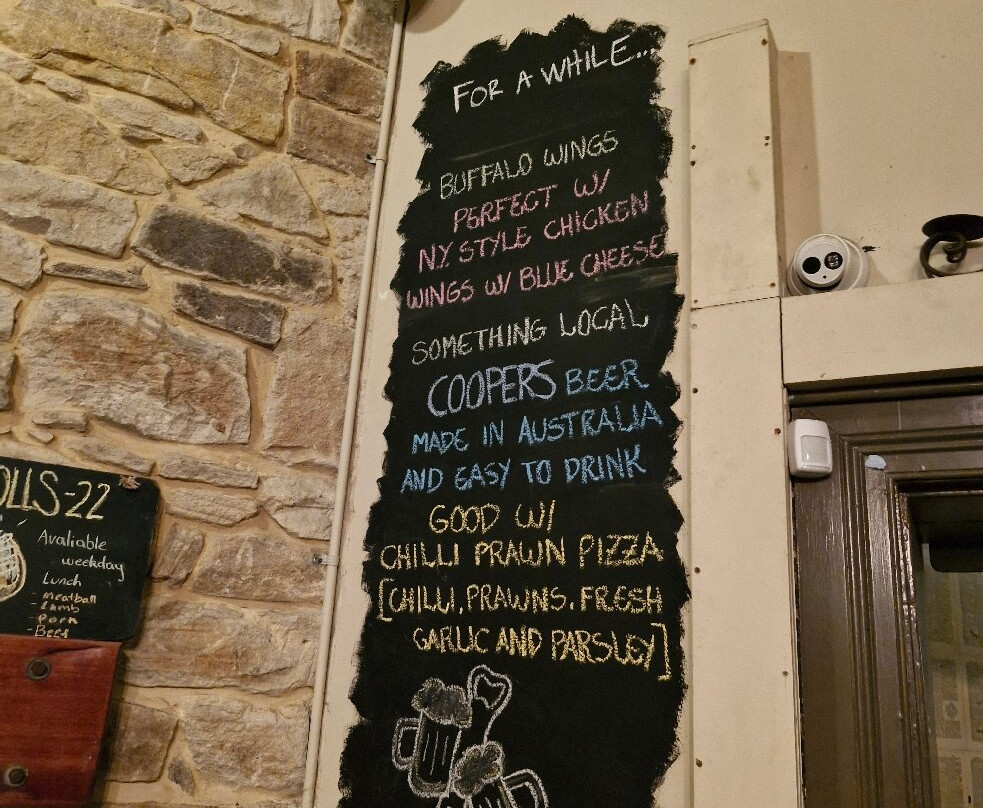 FOR A WHILE...
BUFFALO WINGS
PERFECT W/
N.Y. STYLE CHICKEN
WINGS W/ BLUE CHEESE
SOMETHING LOCAL
COOPERS BEER
MADE IN AUSTRALIA
AND EASY TO DRINK
GOOD W/
CHILLI PRAWN PIZZA
[CHILLI, PRAWNS, FRESH
GARLIC AND PARSLEY]
OLLS-22
Avaliable
weekday
Lunch
- meatball
- Lamb
- Pork
- Beef